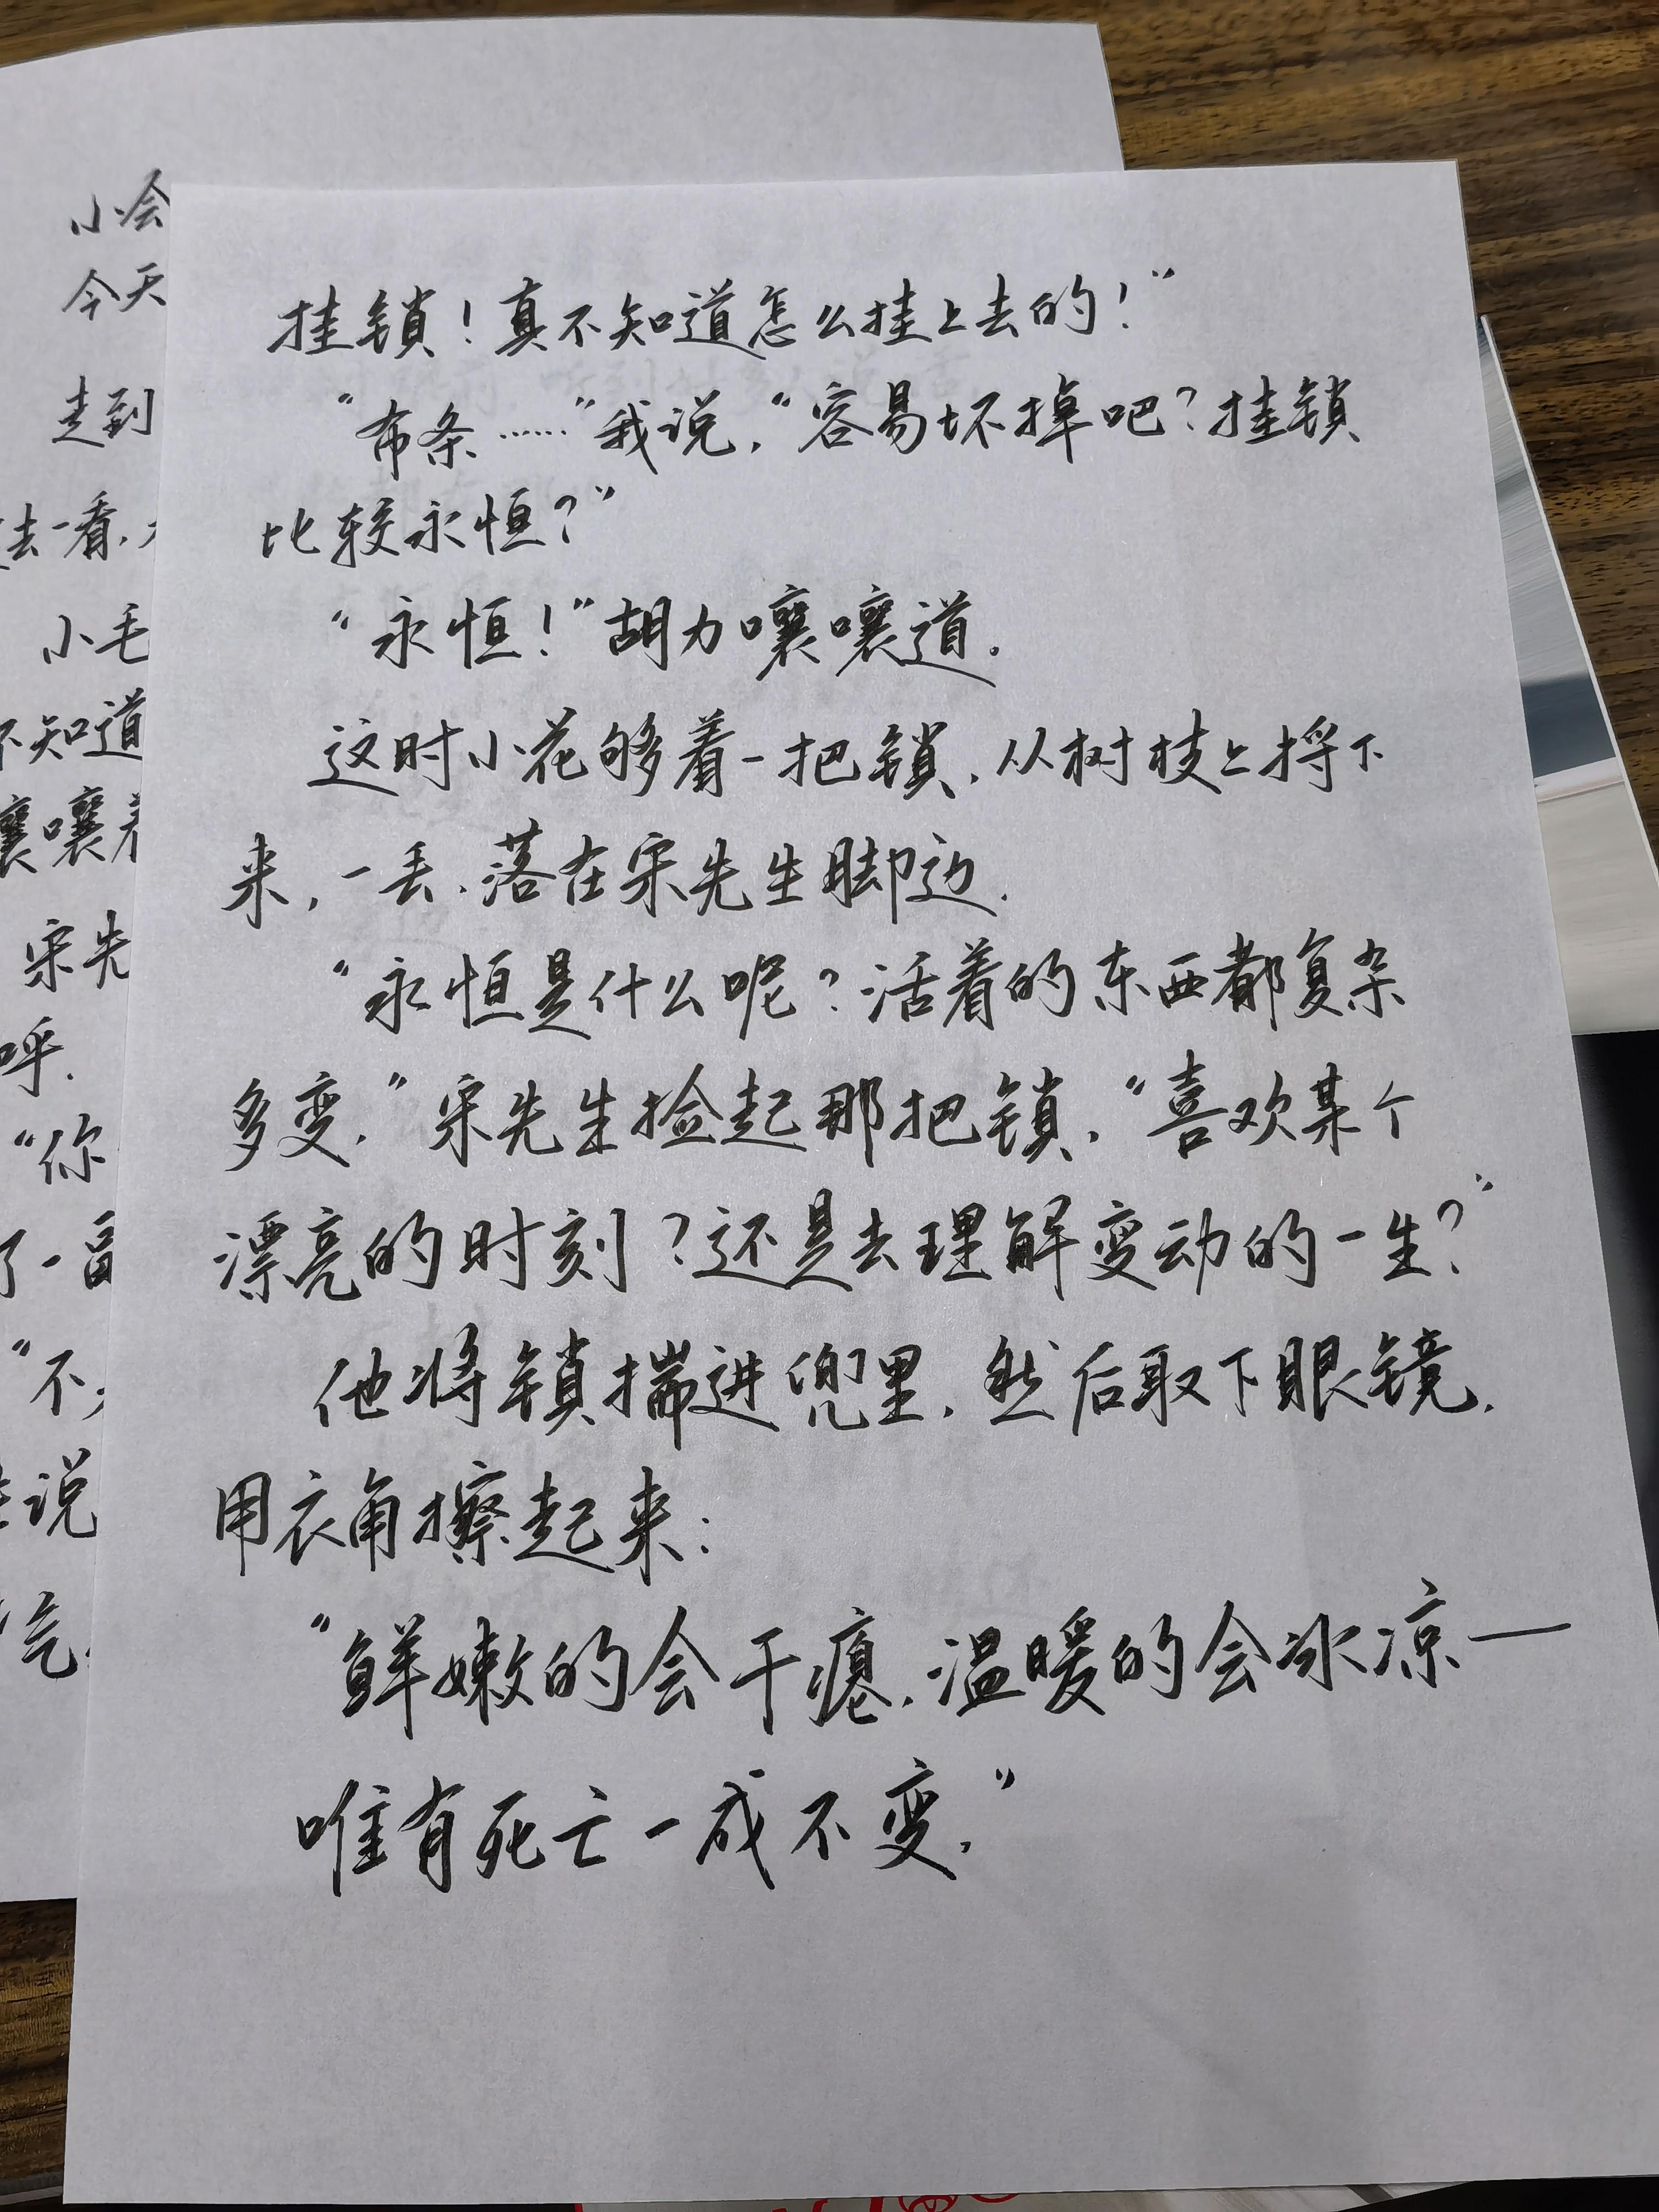 挂锁！真不知道怎么挂上去的！”
“布条……”我说，“容易坏掉吧？挂锁
比较永恒？”
“永恒！”胡力嚷嚷道．
这时小花够着一把锁，从树枝上捋下
来，一丢，落在宋先生脚边．
“永恒是什么呢？活着的东西都复杂
多变，”宋先生捡起那把锁，“喜欢某个
漂亮的时刻？还是去理解变动的一生？”
他将锁揣进兜里，然后取下眼镜，
用衣角擦起来：
“鲜嫩的会干瘪，温暖的会冰凉——
唯有死亡一成不变．”
小会
今天
走到
去一看，
小毛
不知道
嚷嚷着
宋先
呼．
“你
了一
“不
说
气